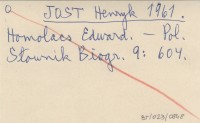 JOST Henryk 1961.
Homolacs Edward. — Pol.
Słownik Biogr. 9: 604.